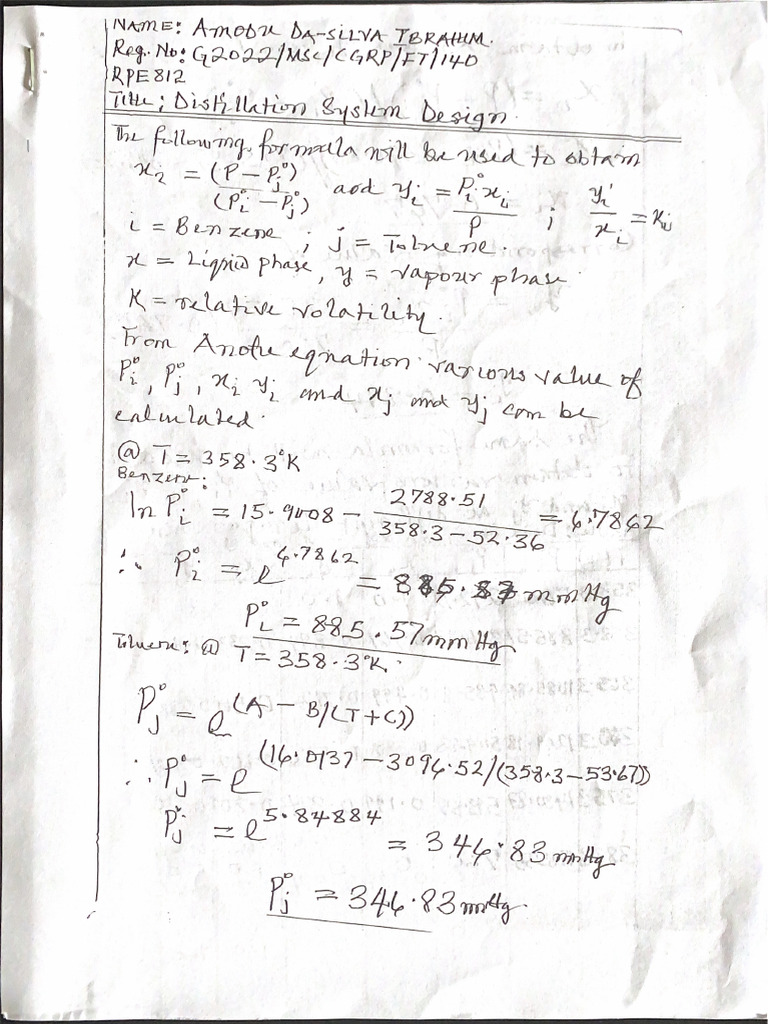 NAME: AMODU DA-SILVA IBRAHIM.
Reg. No: G2022/MSC/CGRP/FT/140
RPE812
Title: Distillation System Design.
The following formula will be used to obtain
xi = (P - Pj°) / (Pi° - Pj°) and yi = Pi° xi / P ; yi / xi = Ki
i = Benzene ; j = Toluene.
x = Liquid phase, y = vapour phase
K = relative volatility.
From Anotie equation various value of
Pi°, Pj°, xi yi and xj and yj can be
calculated.
@ T = 358.3°K
Benzene:
ln Pi° = 15.9008 - 2788.51 / 358.3 - 52.36 = 6.7862
∴ Pi° = e^6.7862 = 885.57 mmHg
Pi° = 885.57 mmHg
Toluene: @ T = 358.3°K.
Pj° = e^(A - B/(T+C))
∴ Pj° = e^(16.0137 - 3096.52/(358.3-53.67))
Pj° = e^5.84884 = 346.83 mmHg
Pj° = 346.83 mmHg.